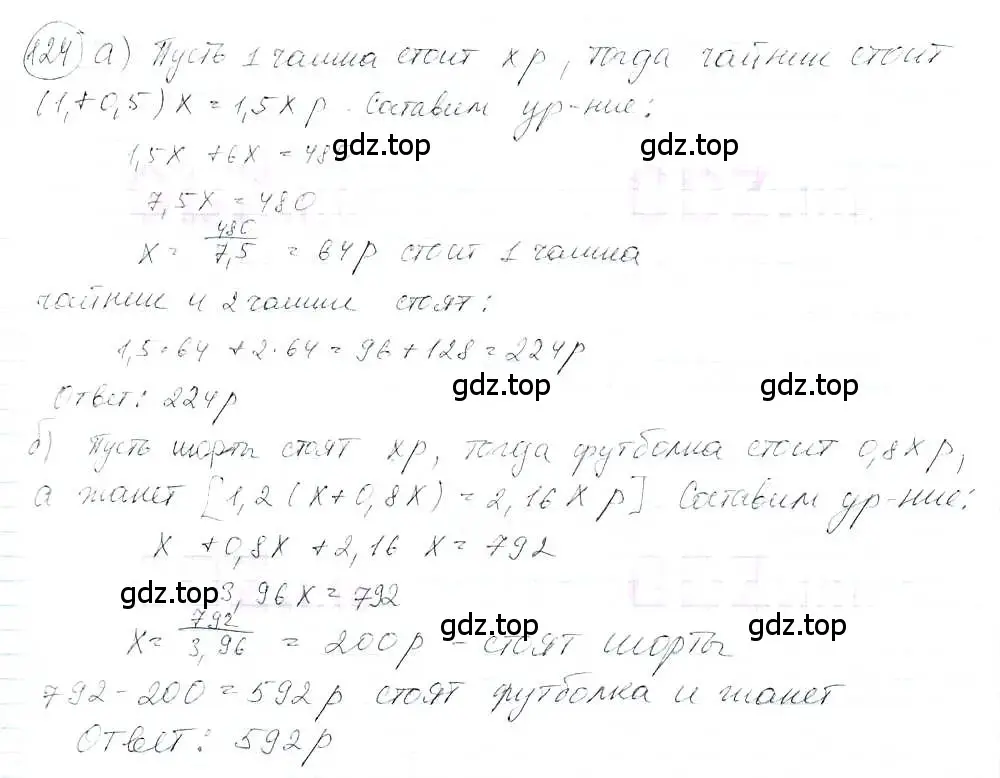 124 а) Пусть 1 чашка стоит x р, тогда чайник стоит
(1,+0,5)x = 1,5x р. Составим ур-ние:
1,5x + 6x = 48
gdz.top gdz.top
7,5x = 480
x = 480/7,5 = 64р стоит 1 чашка
чайник и 2 чашки стоят:
1,5·64 + 2·64 = 96 + 128 = 224р
gdz.top gdz.top
Ответ: 224р
б) Пусть шорты стоят xр, тогда футболка стоит 0,8xр,
а жакет [1,2(x+0,8x) = 2,16x р] Составим ур-ние:
x + 0,8x + 2,16x = 792
gdz.top 3,96x = 792
x = 792/3,96 = 200р - стоят шорты
gdz.top gdz.top
792 - 200 = 592р стоят футболка и жакет
Ответ: 592р